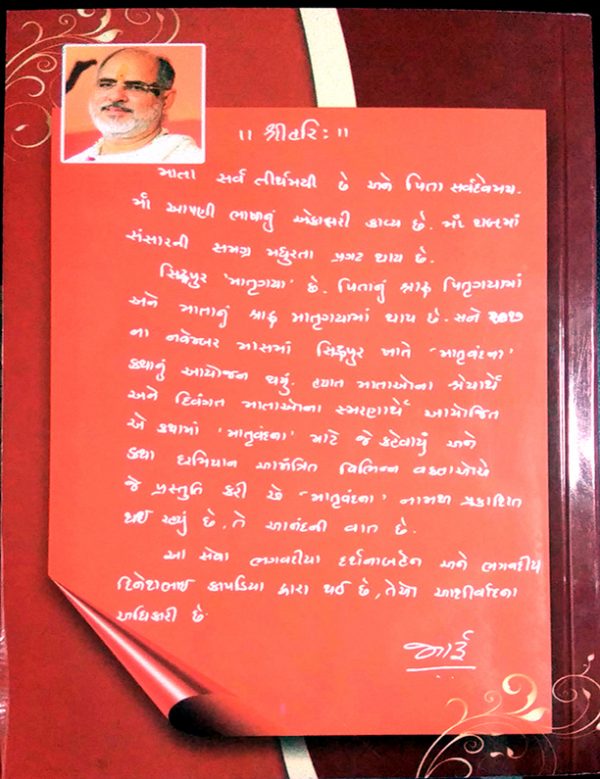 ॥ શ્રીહરિઃ ॥
માતા સર્વ તીર્થમયી છે અને પિતા સર્વદેવમય.
માઁ આપણી ભાષાનું એકાક્ષરી કાવ્ય છે. માઁ શબ્દમાં
સંસારની સમગ્ર મધુરતા પ્રગટ થાય છે.
સિદ્ધપુર 'માતૃગયા' છે. પિતાનું શ્રાદ્ધ પિતૃગયામાં
અને માતાનું શ્રાદ્ધ માતૃગયામાં થાય છે. સને ૨૦૧૭
ના નવેમ્બર માસમાં સિદ્ધપુર ખાતે 'માતૃવંદના'
કથાનું આયોજન થયું. હયાત માતાઓના શ્રેયાર્થે
અને દિવંગત માતાઓના સ્મરણાર્થે આયોજિત
એ કથામાં 'માતૃવંદના' માટે જે કહેવાયું અને
કથા દરમિયાન આમંત્રિત વિભિન્ન વક્તાઓએ
જે પ્રસ્તુતિ કરી છે 'માતૃવંદના' નામથી પ્રકાશિત
થઈ રહ્યું છે. તે આનંદની વાત છે.
આ સેવા ભગવદીયા દર્શનાબહેન અને ભગવદીય
દિનેશભાઈ કાપડિયા દ્વારા થઈ છે, તેઓ આશીર્વાદના
અધિકારી છે